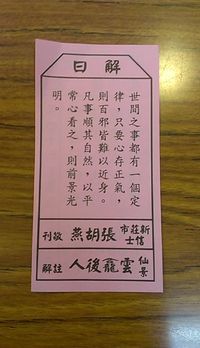 解曰
世間之事都有一個定
律，只要心存正氣，
則百邪皆難以近身。
凡事順其自然，以平
常心看之，則前景光
明。
新莊市信士 張胡燕 敬刊
仙景 雲龍後人 註解